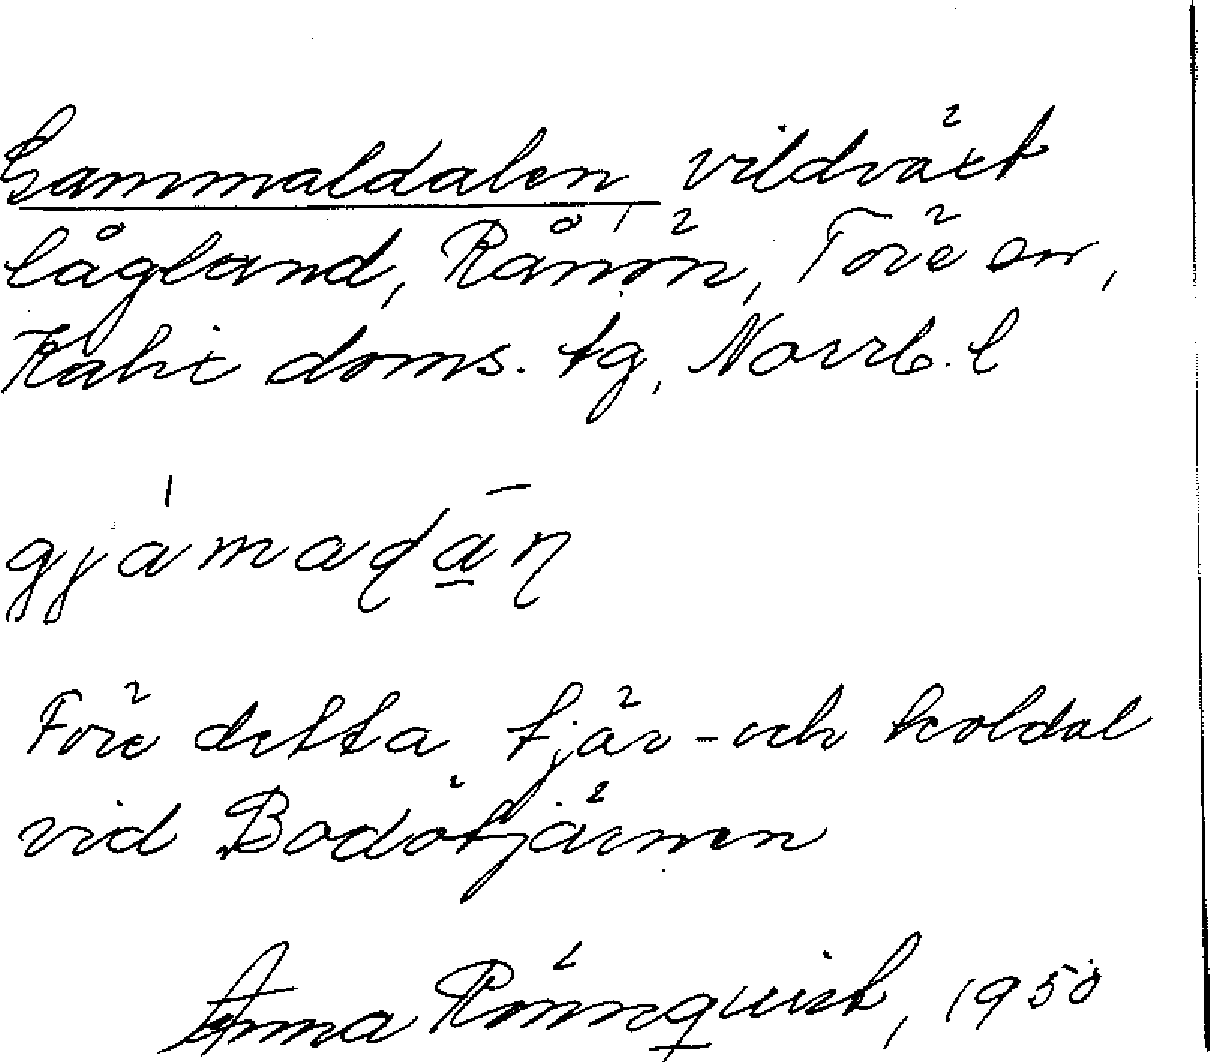 Gammaldalen, vildväxt
lågland, Rånön, Töre sn,
Kalix doms. tg, Norrb. l
gjámadān
Före detta tjär- och koldal
vid Bodötjärnen
Anna Rönnquist, 1950